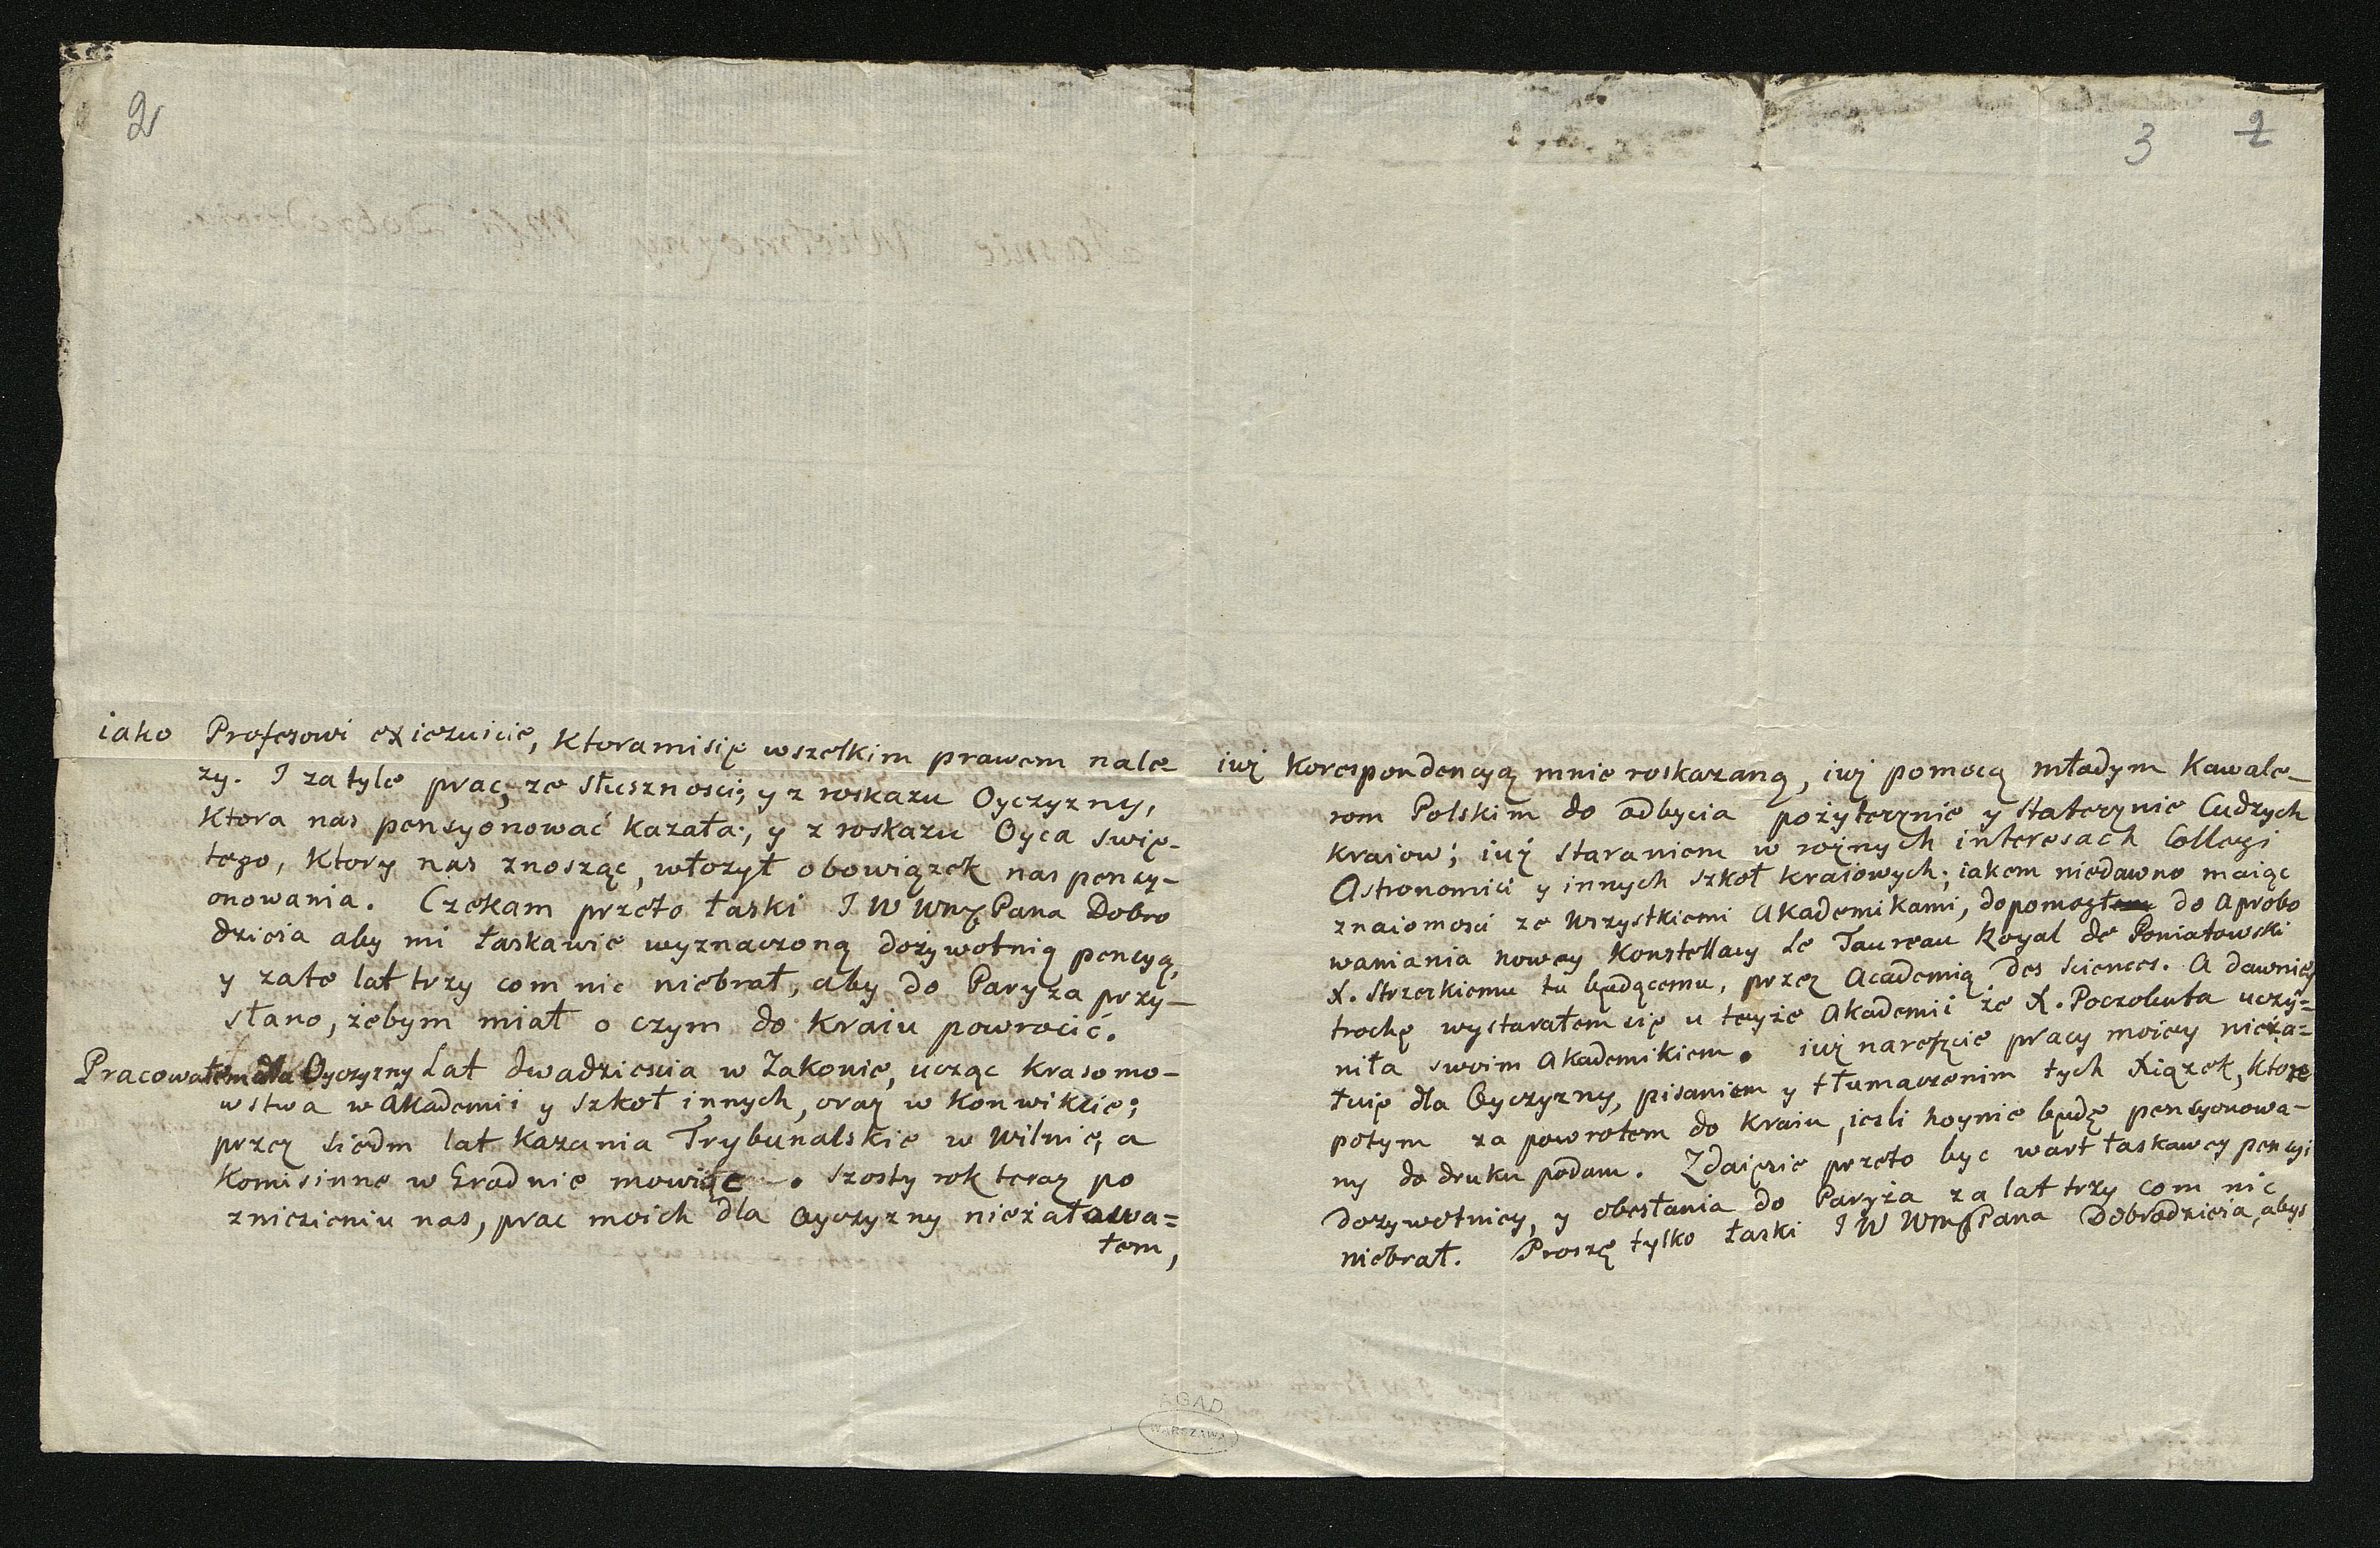 2
iako Profesowi exiezuicie, ktora mi się wszelkim prawem nale-
zy. I za tyle prac, ze słusznosci; y z roskazu Oyczyzny,
ktora nas pensyonować kazała; y z roskazu Oyca swię-
tego, ktory nas znosząc, włożył obowiązek nas pency-
onowania. Czekam przeto łaski JW WmPana Dobro
dzieia aby mi łaskawie wyznaczoną dożywotnią pencyą,
y za te lat trzy com nic niebrał, aby do Paryża przy-
słano, żebym miał o czym do kraiu powrocić.
Pracowałem dla Oyczyzny Lat dwadziescia w Zakonie, ucząc krasomo-
wstwa w Akademii y szkoł innych, oraz w Konwikcie;
przez siedm lat kazania Trybunalskie w Wilnie, a
Komisinne w Grodnie mowiąc. Szosty rok teraz po
zniesieniu nas, prac moich dla Oyczyzny nieżałowa=
łem,
3 2
iuż korespondencyą mnie roskazaną, iuż pomocą młodym Kawale-
rom Polskim do odbycia pożytecznie y statecznie Cudzych
kraiow; iuż staraniem w rożnych interesach Collegi
Astronomici y innych szkoł kraiowych; iakem niedawno maiąc
znaiomosci ze wszystkiemi Akademikami, dopomogłem do Aprobo
waniania nowey Konstellacy Le Taureau Royal de Poniatowski
X. Strzeckiemu tu będącemu, przez Academią des Sciences. A dawniey
trochę wystarałem się u teyże Akademii że X. Poczobuta uczy=
niła swoim Akademikiem. iuż nareszcie pracy moiey nieża=
łuię dla Oyczyzny, pisaniem y tłumaczenim tych Xiązek, ktore
potym za powrotem do kraiu, iesli hoynie będę pensyonowa-
ny do druku podam. Zdaięsie przeto byc wart łaskawey pencyi
dozywotniey, y obesłania do Paryża za lat trzy com nic
niebrał. Proszę tylko łaski JW WmPana Dobrodzieia, abyś
AGAD
WARSZAWA